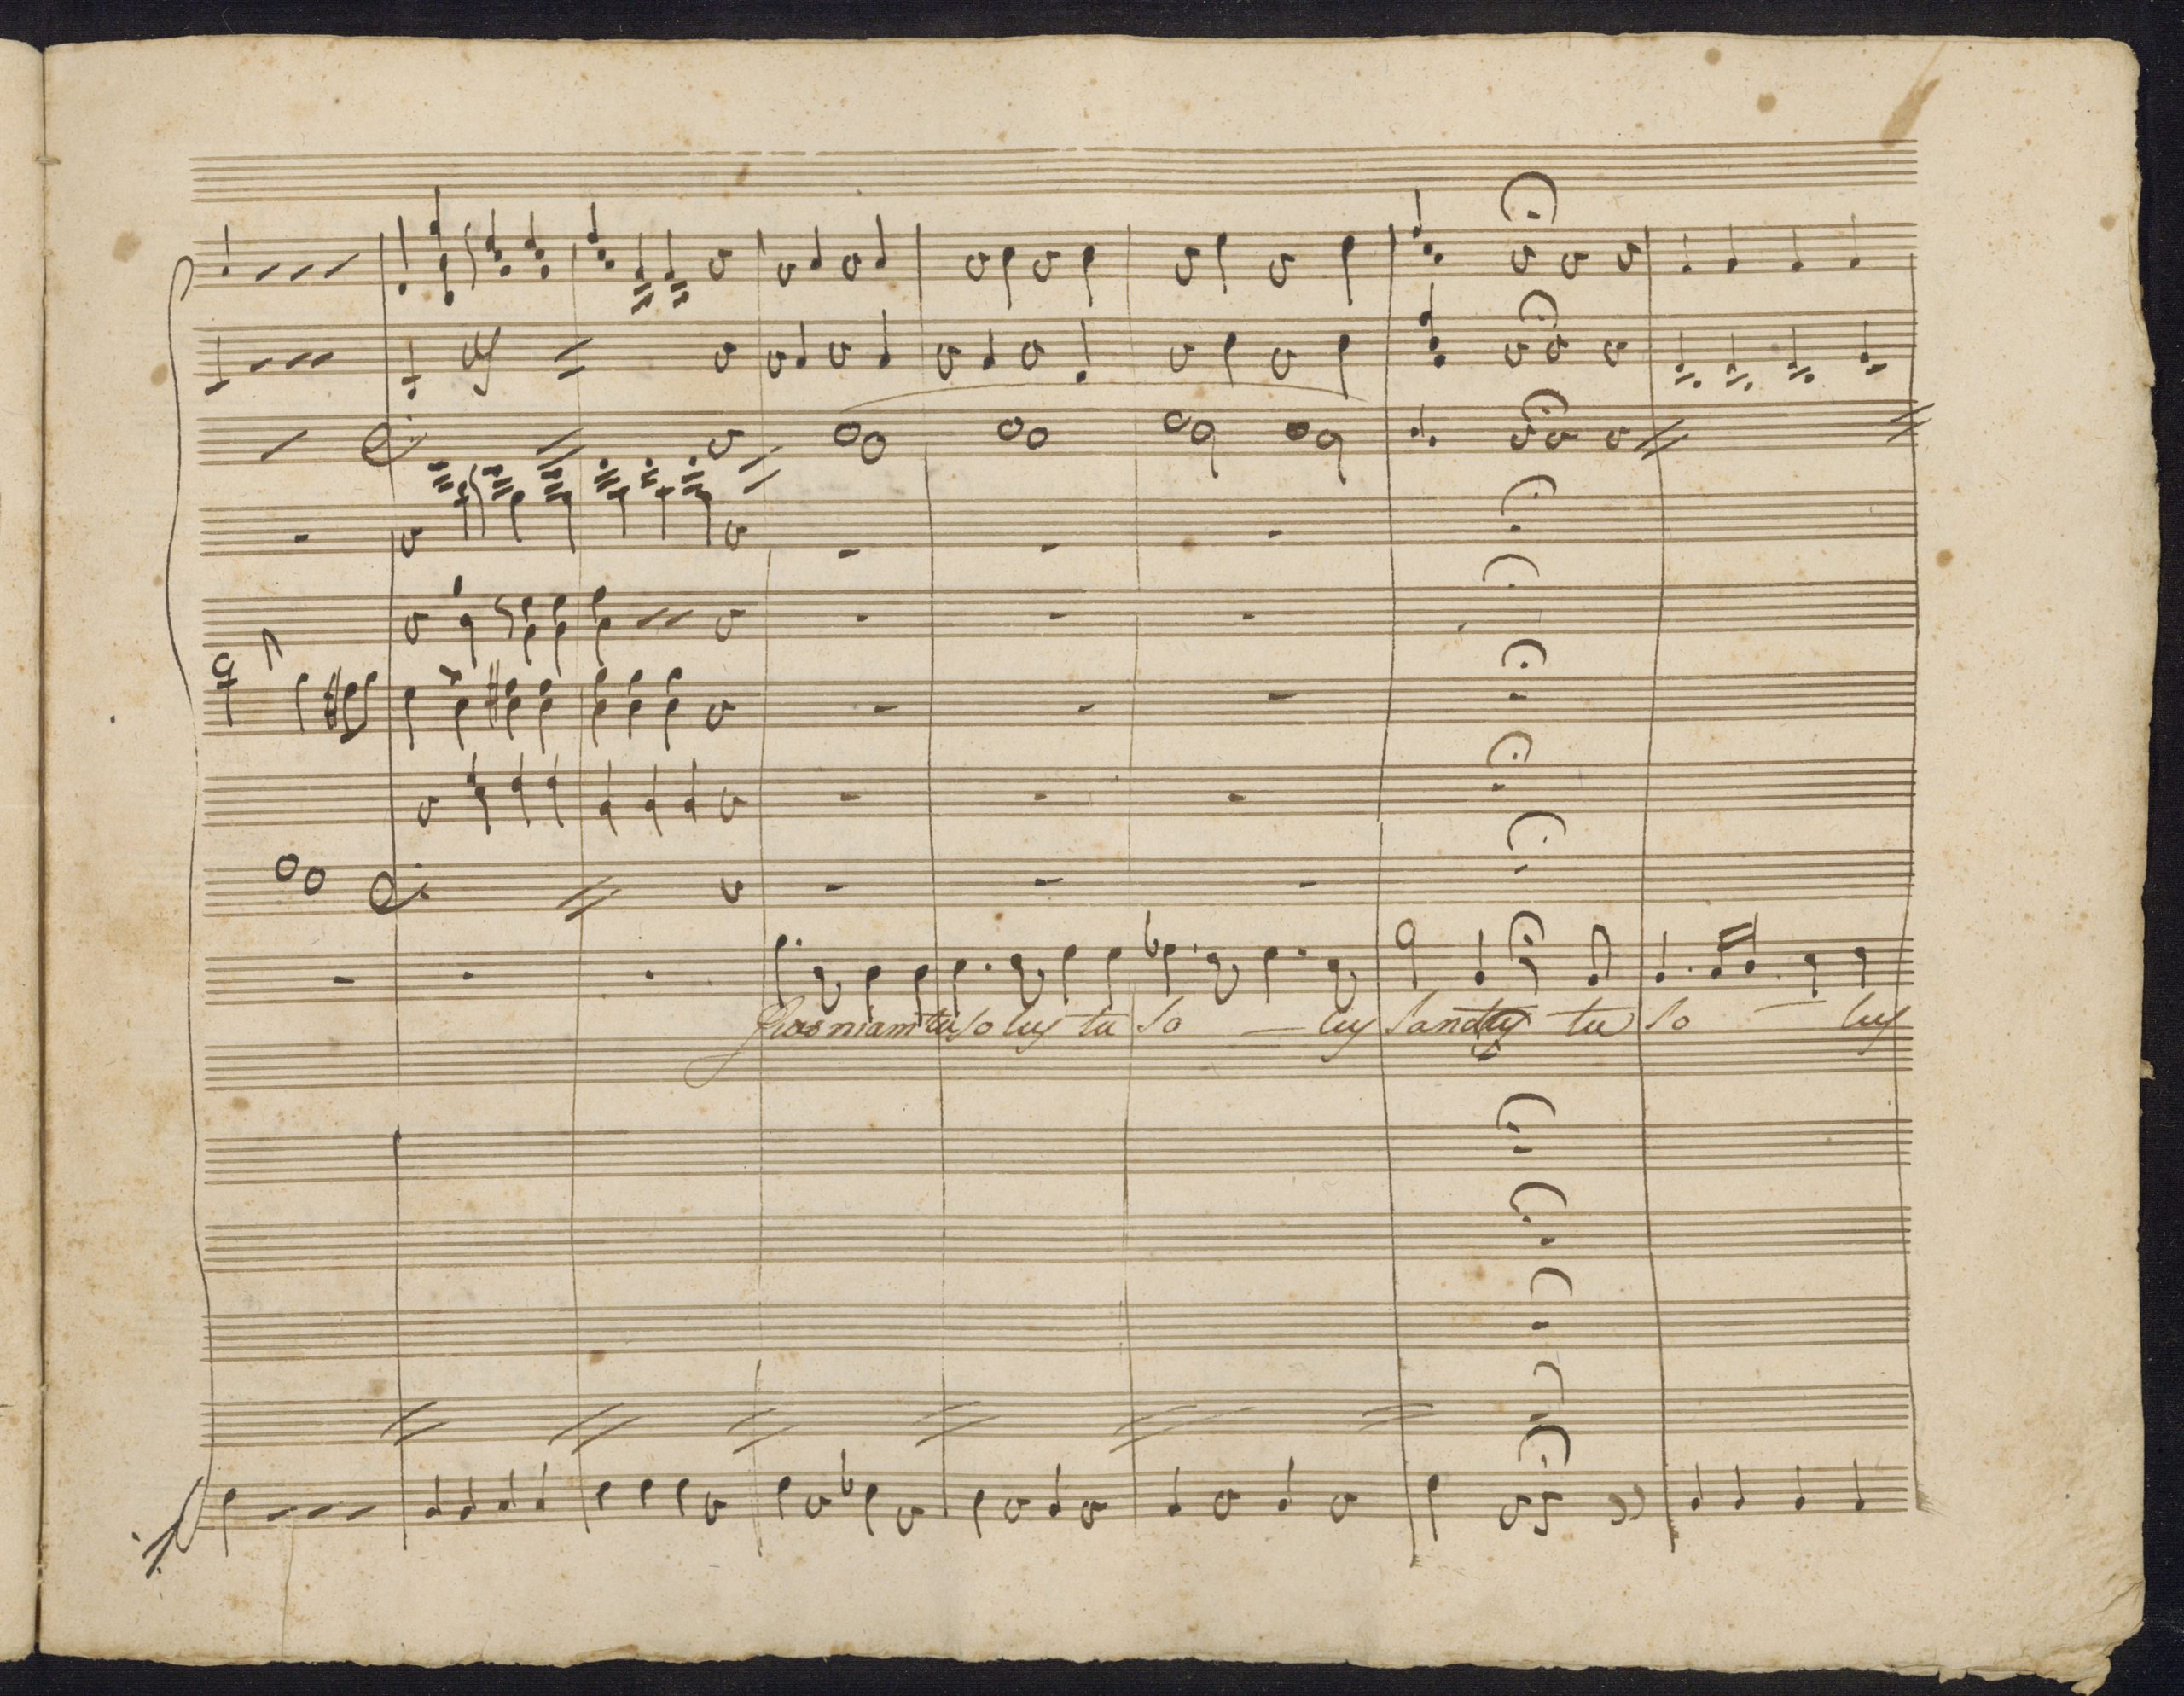 Quoniam tu solus tu so — lus Sanctus tu so — lus